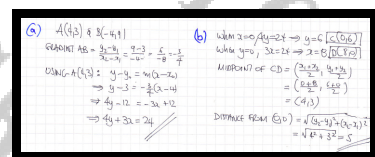 (a) A(4,3) & B(-4,9)
GRADIENT AB = (y₂-y₁)/(x₂-x₁) = (9-3)/(-4-4) = 6/-8 = -3/4
USING A(4,3): y-y₁ = m(x-x₁)
⇒ y-3 = -3/4(x-4)
⇒ 4y-12 = -3x+12
⇒ 4y+3x=24
(b) WHEN x=0, 4y=24 ⇒ y=6 C(0,6)
WHEN y=0, 3x=24 ⇒ x=8 D(8,0)
MIDPOINT OF CD = ((x₁+x₂)/2, (y₁+y₂)/2)
= ((0+8)/2, (6+0)/2)
= (4,3)
DISTANCE FROM (0,0) = √((y₂-y₁)²+(x₂-x₁)²)
= √(4²+3²) = 5